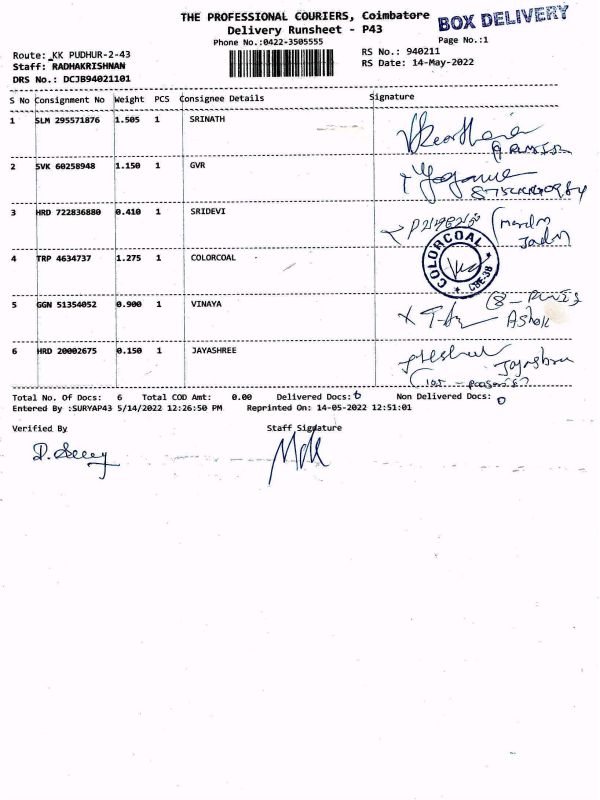 THE PROFESSIONAL COURIERS, Coimbatore
BOX DELIVERY
Delivery Runsheet - P43
Phone No.:0422-3505555
Page No.:1
Route: KK PUDHUR-2-43
RS No.: 940211
Staff: RADHAKRISHNAN
RS Date: 14-May-2022
DRS No.: DCJB94021101
S No Consignment No Weight PCS Consignee Details Signature
1 SLM 295571876 1.505 1 SRINATH
2 SVK 60258948 1.150 1 GVR
3 HRD 722836880 0.410 1 SRIDEVI
4 TRP 4634737 1.275 1 COLORCOAL
COLORCOAL
CBE-38
5 GGN 51354052 0.900 1 VINAYA
Ashok
6 HRD 20002675 0.150 1 JAYASHREE
Total No. Of Docs: 6 Total COD Amt: 0.00 Delivered Docs: 6 Non Delivered Docs: 0
Entered By :SURYAP43 5/14/2022 12:26:50 PM Reprinted On: 14-05-2022 12:51:01
Verified By Staff Signature